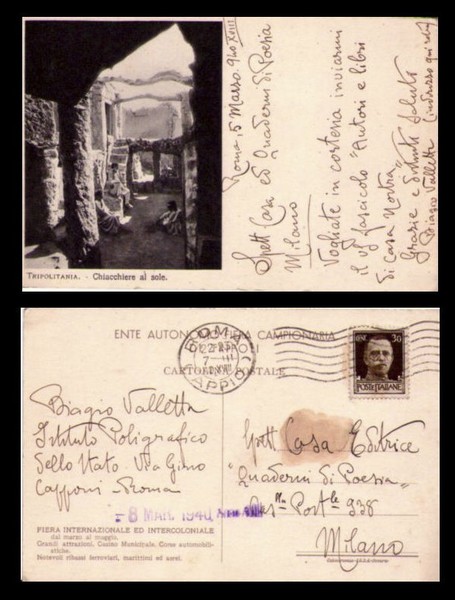 TRIPOLITANIA. - Chiacchiere al sole.
Roma, 5 Marzo. 940 XVIII
Spett Casa ed Quaderni di Poesia
Milano
Vogliate in cortesia inviarmi
il vs/ fascicolo "Autori e libri
di Casa nostra"
Grazie e distinti saluti
Biagio Valletta
ENTE AUTONOMO FIERA CAMPIONARIA
DI TRIPOLI
CARTOLINA POSTALE
ROMA
7 - III
APPIO
CENT. 30
POSTE ITALIANE
Biagio Valletta
Istituto Poligrafico
dello Stato - Via Gino
Capponi - Roma
- 8 MAR. 1940
FIERA INTERNAZIONALE ED INTERCOLONIALE
dal marzo al maggio.
Grandi attrazioni, Casino Municipale, Corse automobili-
stiche.
Notevoli ribassi ferroviari, marittimi ed aerei.
Spett Casa Editrice
"Quaderni di Poesia"
Cas lla Post le 938
Milano